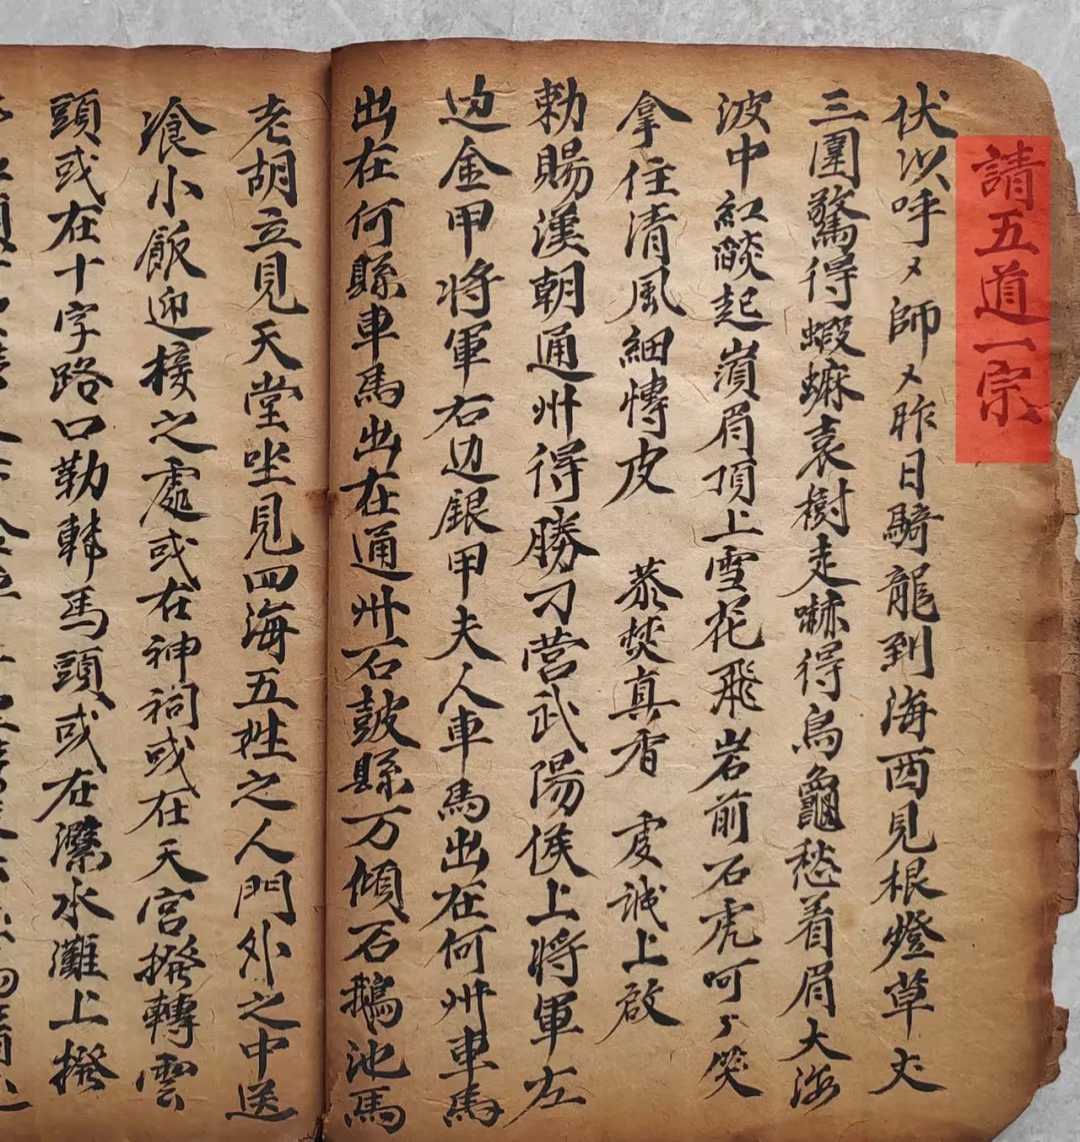 請五道一宗
伏以呼〻師〻昨日騎龍到海西見根燈草丈
三圍驚得蝦蟆袁樹走嚇得烏龜愁着眉大海
波中紅燄起嵿眉頂上雪花飛岩前石虎呵〻笑
拿住清風細慱皮 恭焚真香 虔誠上啟
勅賜漢朝通州得勝刁营武陽侯上將軍左
边金甲将軍右边銀甲夫人車馬出在何州車馬
出在何縣車馬出在通州石皷縣万傾石鵝池馬
老胡立見天堂坐見四海五姓之人門外之中送
飡小飯迎接之處或在神祠或在天宮撥轉雲
頭或在十字路口勒轉馬頭或在溁水灘上撥